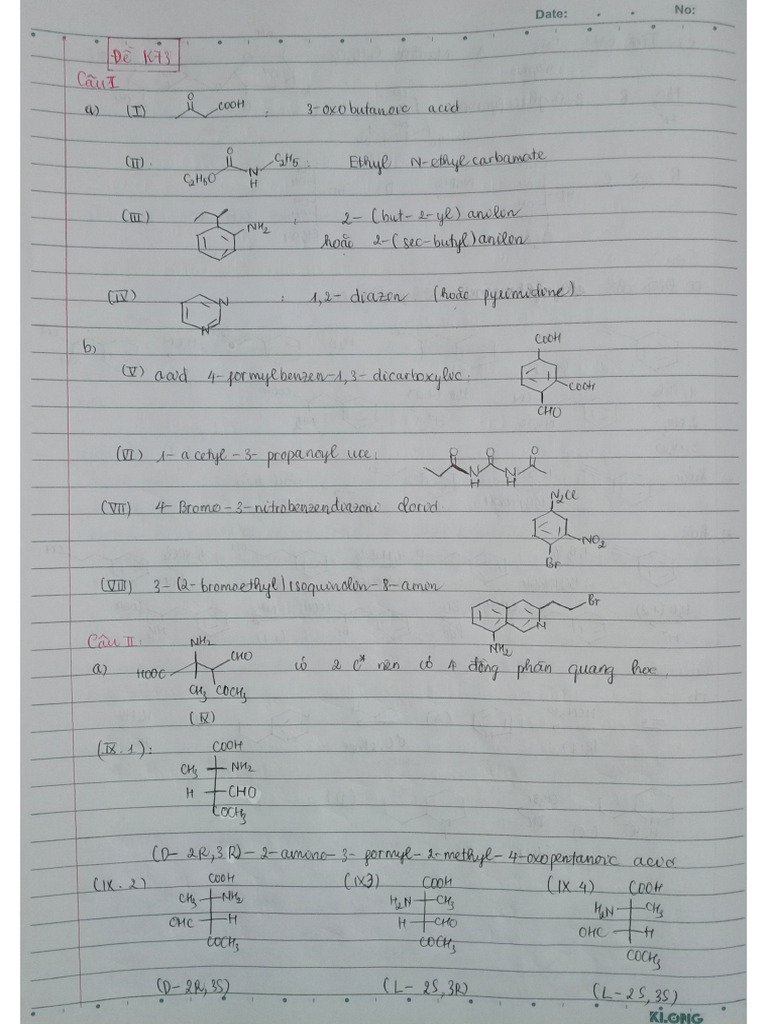 Date: . . No:
Đề K73
Câu I
a) (I) O COOH : 3-oxobutanoic acid
(II). O C2H5O N H C2H5 : Ethyl N-ethylcarbamate
(III) NH2 : 2-(but-2-yl)anilin
hoặc 2-(sec-butyl)anilin
(IV) N N : 1,2-diazin (hoặc pyrimidine)
b)
(V) acid 4-formylbenzen-1,3-dicarboxylic. COOH COOH CHO
(VI) 1-acetyl-3-propanoyl ure: O O O N H N H
(VII) 4-Bromo-3-nitrobenzendiazoni clorid. N2Cl NO2 Br
(VIII) 3-(2-bromoethyl)isoquinolin-8-amin Br N NH2
Câu II:
a) HOOC NH2 CHO CH3 COCH3 có 2 C* nên có 4 đồng phân quang học.
(IX)
(IX.1): COOH
CH3 NH2
H CHO
COCH3
(D-2R,3R)-2-amino-3-formyl-2-methyl-4-oxopentanoic acid
(IX.2) COOH (IX3) COOH (IX.4) COOH
CH3 NH2 H2N CH3 H2N CH3
OHC H H CHO OHC H
COCH3 COCH3 COCH3
(D-2R,3S) (L-2S,3R) (L-2S,3S)
KLONG